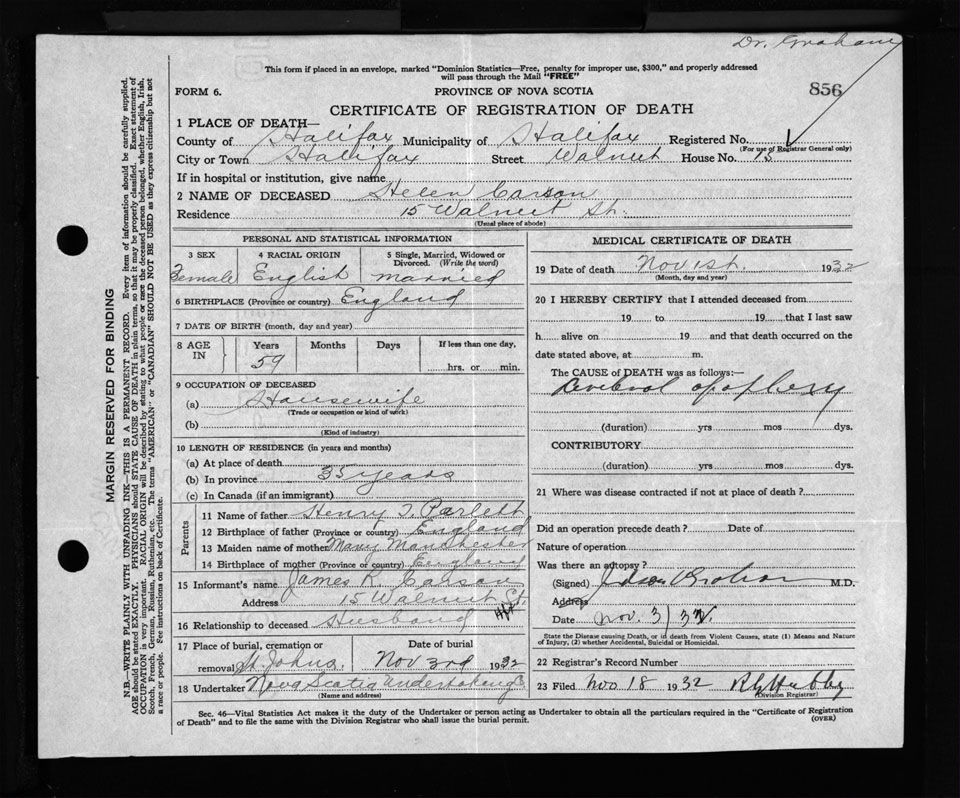 Dr. Graham
This form if placed in an envelope, marked "Dominion Statistics—Free, penalty for improper use, $300," and properly addressed
will pass through the Mail "FREE"
FORM 6.
PROVINCE OF NOVA SCOTIA
856
CERTIFICATE OF REGISTRATION OF DEATH
1 PLACE OF DEATH—
County of Halifax Municipality of Halifax Registered No.
(For use of Registrar General only)
City or Town Halifax Street Walnut House No. 15
If in hospital or institution, give name
2 NAME OF DECEASED Helen Carson
Residence 15 Walnut St.
(Usual place of abode)
PERSONAL AND STATISTICAL INFORMATION
3 SEX 4 RACIAL ORIGIN 5 Single, Married, Widowed or
Divorced. (Write the word)
Female English married
6 BIRTHPLACE (Province or country) England
7 DATE OF BIRTH (month, day and year)
8 AGE IN Years Months Days If less than one day,
59 hrs. or min.
9 OCCUPATION OF DECEASED
(a) Housewife
(Trade or occupation or kind of work)
(b)
(Kind of industry)
10 LENGTH OF RESIDENCE (in years and months)
(a) At place of death
(b) In province 35 years
(c) In Canada (if an immigrant)
Parents
11 Name of father Henry T. Parlett
12 Birthplace of father (Province or country) England
13 Maiden name of mother Mary Manchester
14 Birthplace of mother (Province or country) England
15 Informant's name James R. Carson
Address 15 Walnut St.
Hfx
16 Relationship to deceased Husband
17 Place of burial, cremation or Date of burial
removal St. Johns. Nov 3rd 1932
18 Undertaker Nova Scotia Undertaking Co
(Name and address)
MEDICAL CERTIFICATE OF DEATH
19 Date of death Nov 1st. 1932
(Month, day and year)
20 I HEREBY CERTIFY that I attended deceased from
19 to 19 that I last saw
h alive on 19 and that death occurred on the
date stated above, at m.
The CAUSE of DEATH was as follows:—
Cerebral apoplexy
(duration) yrs mos dys.
CONTRIBUTORY
(duration) yrs mos dys.
21 Where was disease contracted if not at place of death?
Did an operation precede death? Date of
Nature of operation
Was there an autopsy?
(Signed) M.D.
Address
Date Nov. 3/32
State the Disease causing Death, or in death from Violent Causes, state (1) Means and Nature
of Injury, (2) whether Accidental, Suicidal or Homicidal.
22 Registrar's Record Number
23 Filed Nov 18 1932
(Division Registrar)
Sec. 46—Vital Statistics Act makes it the duty of the Undertaker or person acting as Undertaker to obtain all the particulars required in the "Certificate of Registration
of Death" and to file the same with the Division Registrar who shall issue the burial permit.
(OVER)
MARGIN RESERVED FOR BINDING
N.B.—WRITE PLAINLY WITH UNFADING INK—THIS IS A PERMANENT RECORD. Every item of information should be carefully supplied.
AGE should be stated EXACTLY. PHYSICIANS should STATE CAUSE OF DEATH in plain terms, so that it may be properly classified. Exact statement of
OCCUPATION is very important. RACIAL ORIGIN will be described by stating to what people or race the deceased person belonged, whether English, Irish,
Scotch, French, German, Russian, Ruthenian, etc. The terms "AMERICAN" or "CANADIAN" SHOULD NOT BE USED as they express citizenship but not
a race or people. Fee instructions on back of Certificate.